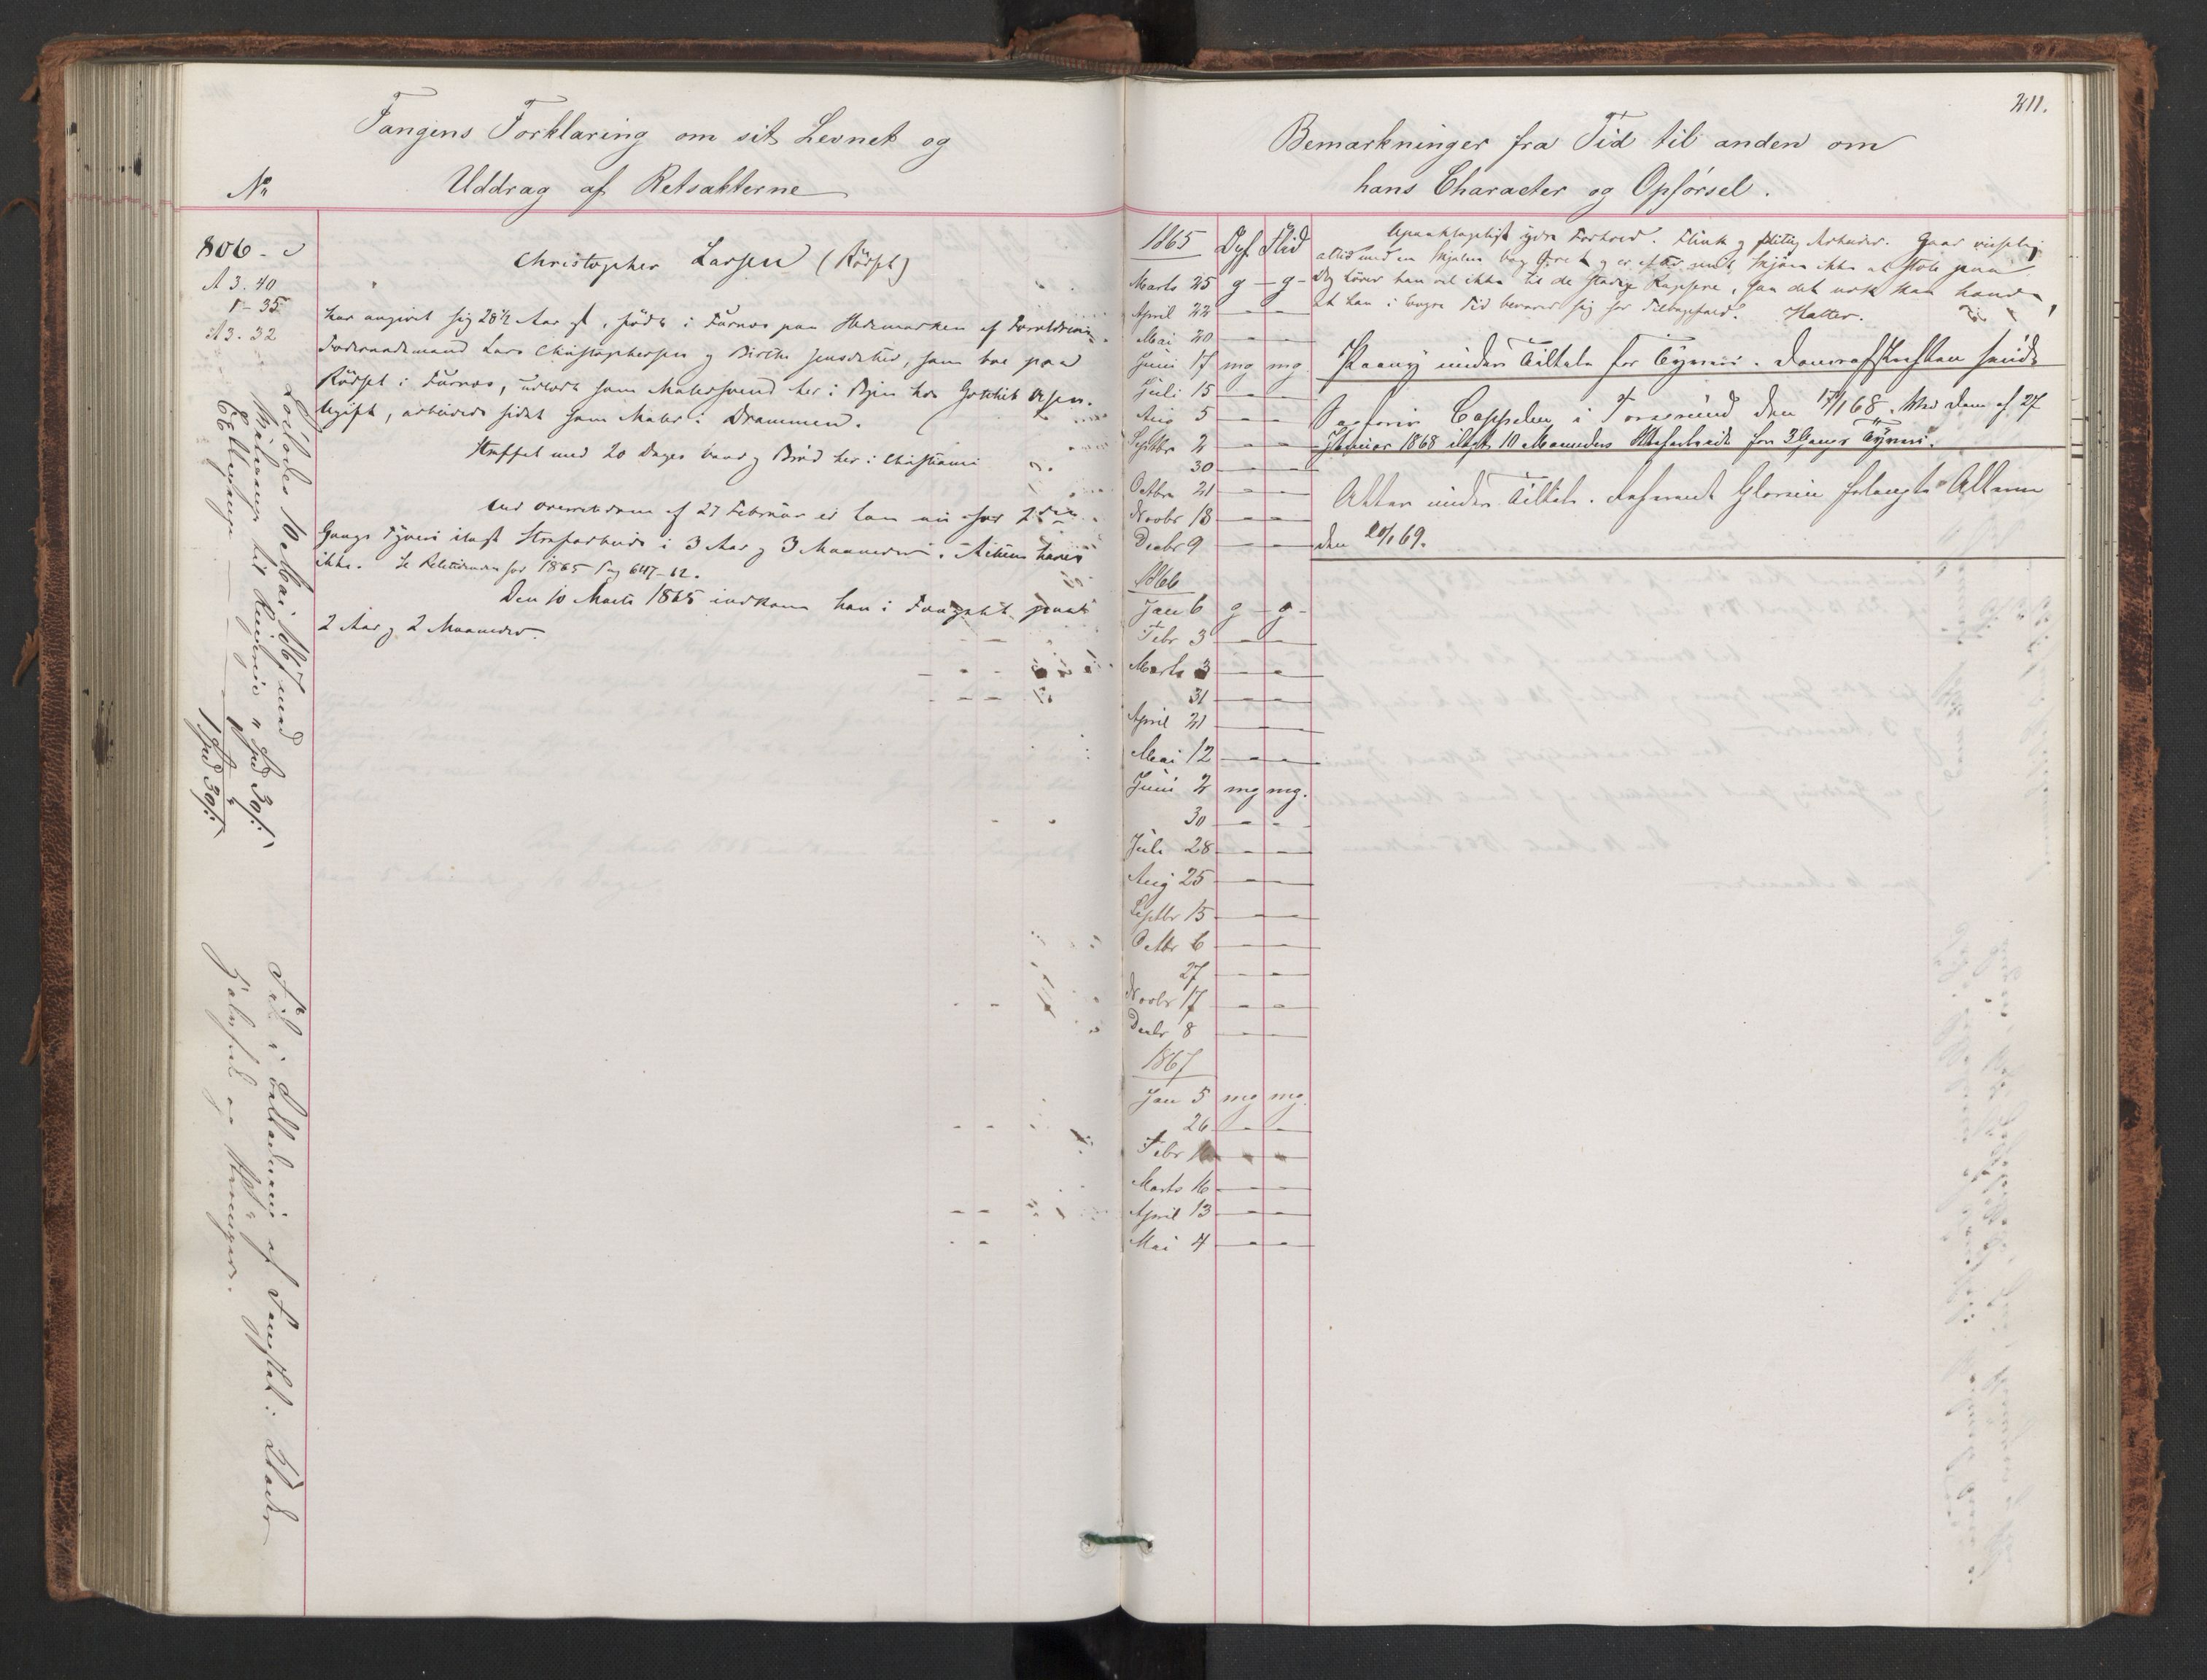 Fangens Forklaring om sit Levnet og
Uddrag af Retsakterne
No
806
A 3. 40
" - 35
A 3. 32
Christopher Larsen (Rödset)
har angivet sig 28½ Aar gl, födt i Furnæs paa Hedemarken af Forældrene
Lars Christophersen og Birthe Jensdatter, som boe paa
Rödset i Furnæs, udlært som Malersvend her i Byen hos
Ugift, arbeidede sidst som Maler i Drammen.
Straffet med 20 Dages Vand og Bröd her i Christiania
Ved Overretsdom af 27 Februar er han nu for 2den
Gangs Tyveri ilagt Strafarbeide i 3 Aar og 3 Maaneder. Actum haves
ikke. Se Retstidende for 1865 Pag 647-62.
Den 10 Marts 1865 indkom han i Fængslet paa
2 Aar og 2 Maaneder.
Löslodes 10 Mai 1867 med
Bidrag til Reisen " Spd 30 s:
1 Spd 30 s:
Fik i af Fængslet: Klæder
211.
Bemærkninger fra Tid til anden om
hans Character og Opförsel.
1865 Opf. Flid
Marts 25 g - g -
April 22 - -
Mai 20 - -
Juni 17 mg mg.
Juli 15 - -
Aug 5 - -
Septbr 2 - -
30 - -
Octbr 21 - -
Novbr 18 - -
Decbr 9 - -
1866
Jan 6 g - g -
Febr 3 - -
Marts 3 - -
31 - -
April 21 - -
Mai 12 - -
Juni 2 mg mg.
30 - -
Juli 28 - -
Aug 25 - -
Septbr 15 - -
Octbr 6 - -
27 - -
Novbr 17 - -
Decbr 8 - -
1867
Jan 5 mg mg.
26 - -
Febr - -
Marts 16 - -
April 13 - -
Mai 4 - -
Upaaklageligt ydre Forhold. Flink og flittig Arbeider. Gaar
altid med en Skjelm bag Öret og er efter mit Skjön ikke at stole paa
Dog hörer han vel ikke til de , saa det nok kan hænde,
at han i længere Tid bevarer sig for Tilbagefald. Halter.
Paany under Tiltale for Tyveri. Domsafskriften sendt
Cappelen i Porsgrund den 17/1 68. Ved Dom af 27
Januar 1868 ilagt 10 Maaneders Strafarbeide for 3 Gangs Tyveri.
Atter under Tiltale. forlangte Akterne
den 20/1 69.